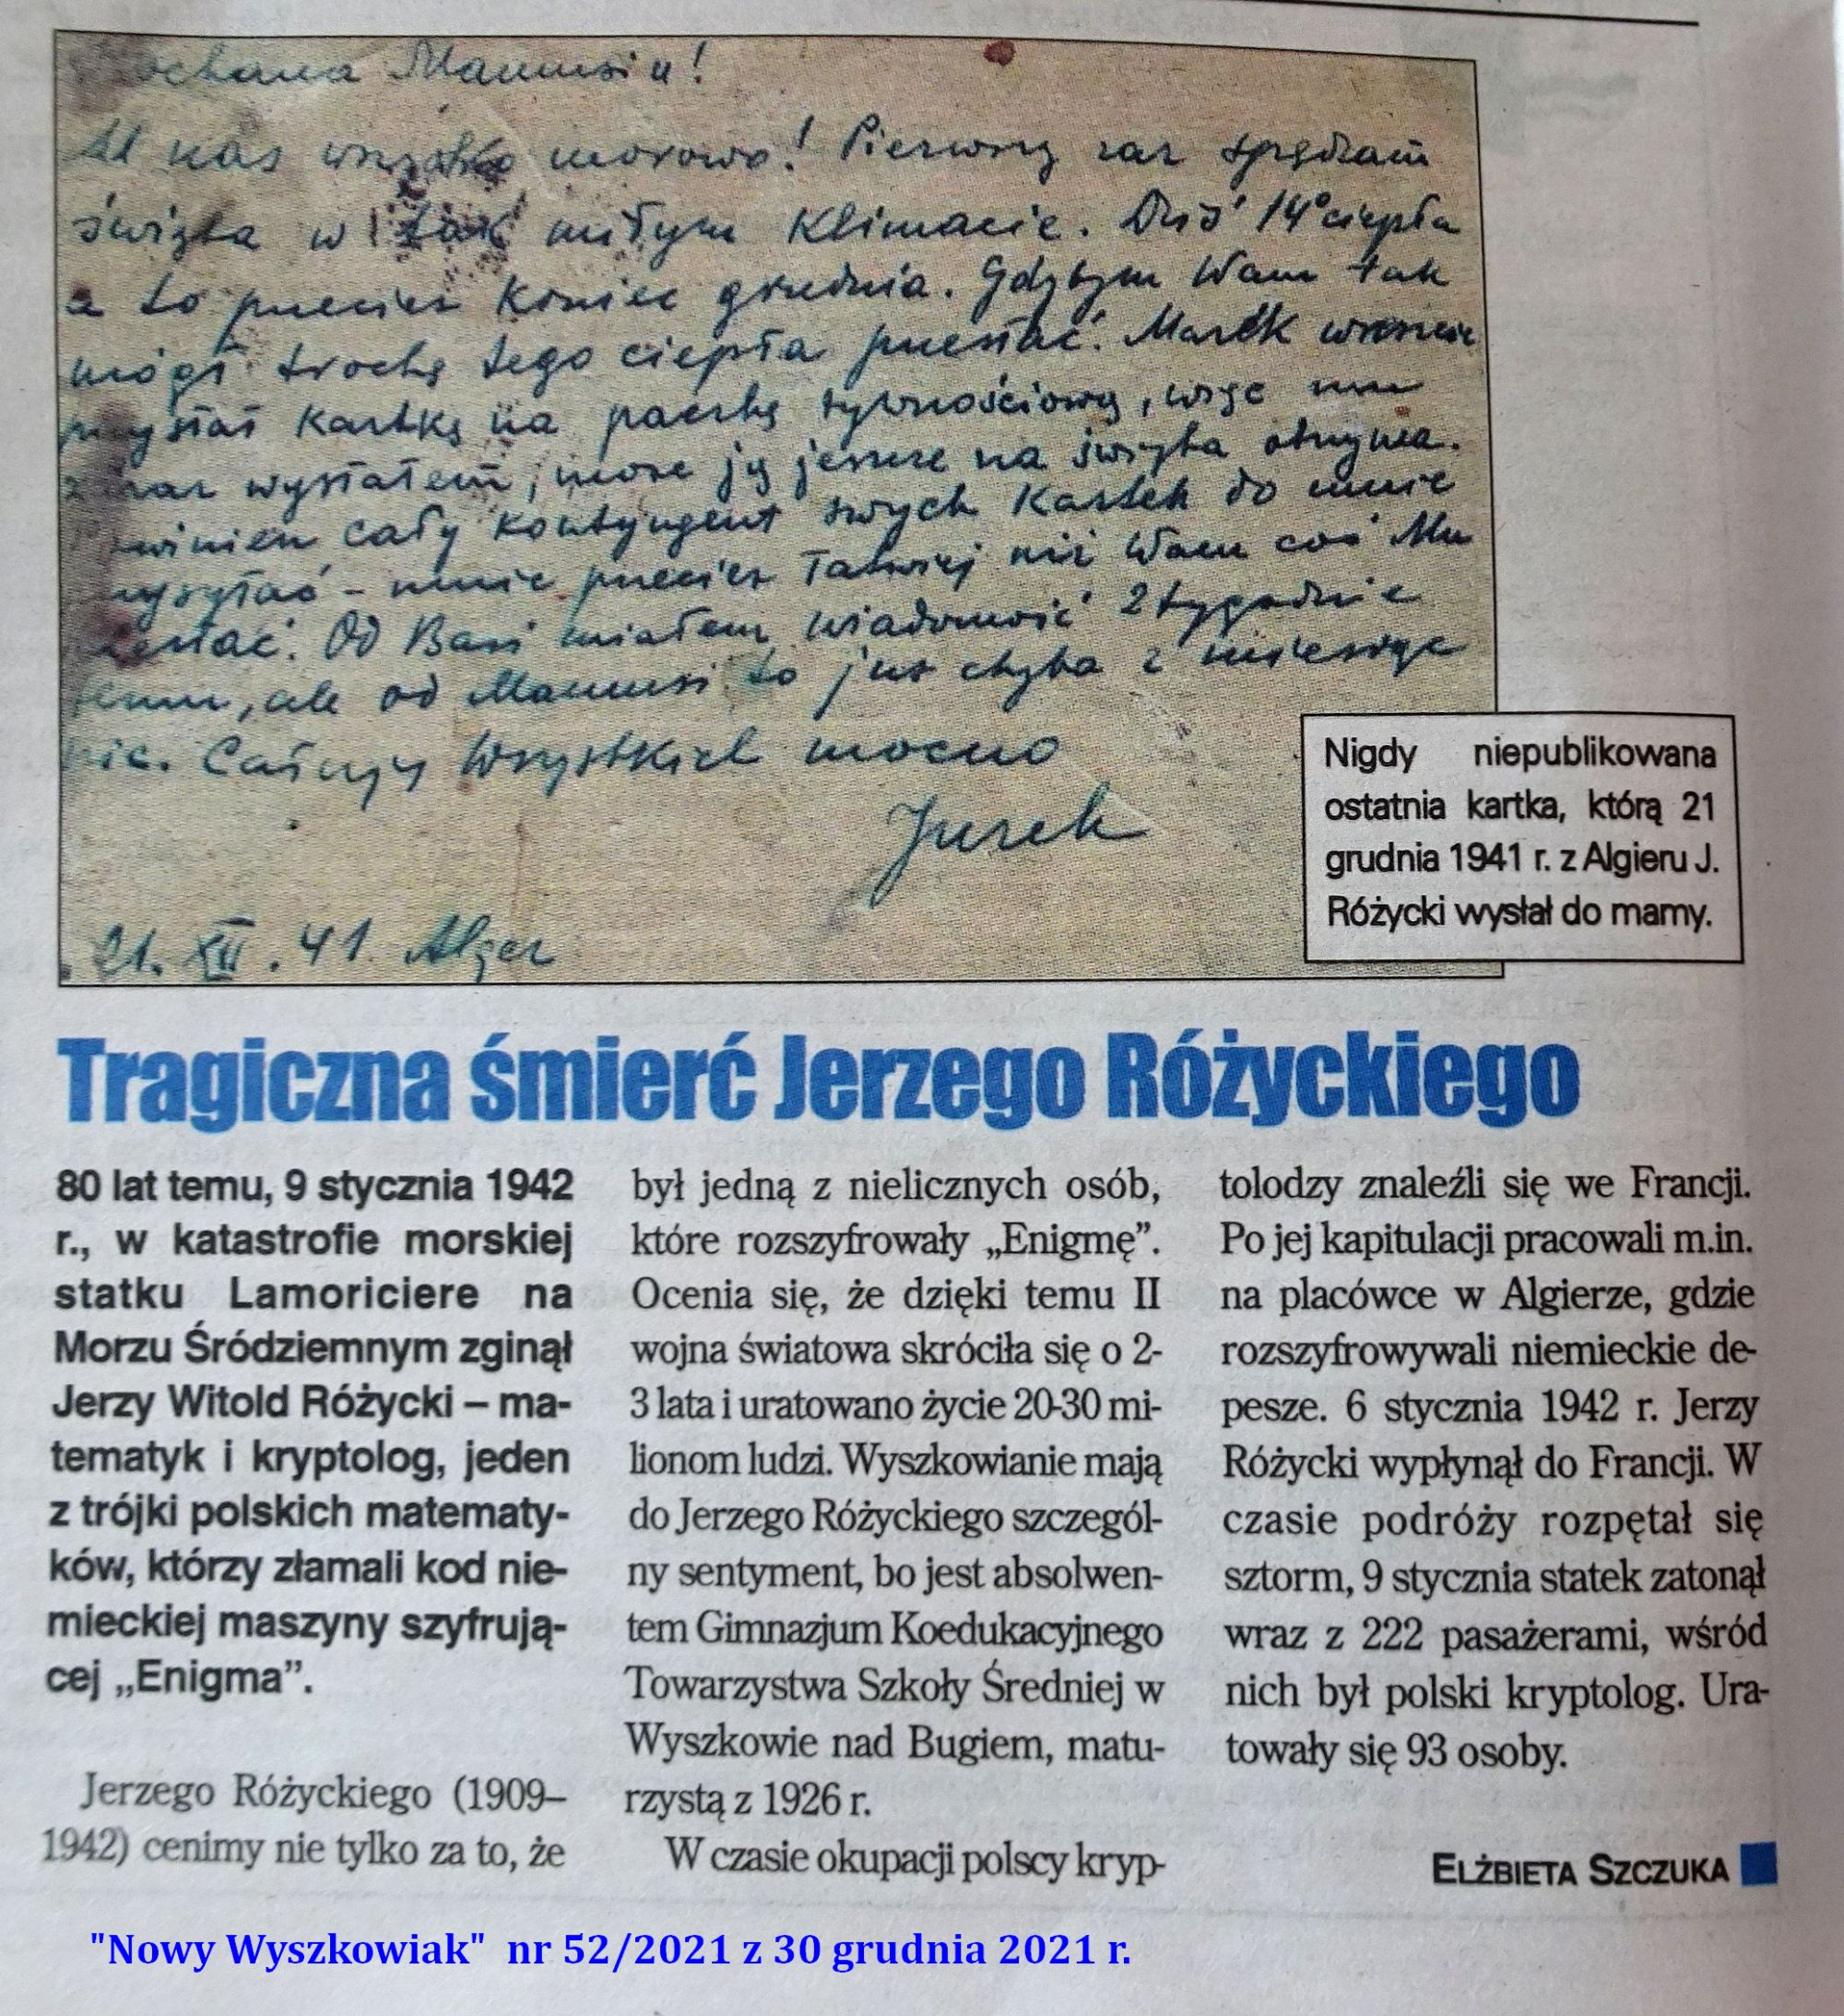 ochana Mamusiu!
U nas wszystko morowo! Pierwszy raz spędzam
święta w tak miłym klimacie. Dziś 14° ciepła
a to przecież koniec grudnia. Gdybym Wam tak
mógł trochę tego ciepła przesłać! Marek wreszcie
przysłał kartkę na paczkę żywnościową, więc mu
zaraz wysłałem, może ją jeszcze na święta otrzyma.
winien cały kontyngent swych kartek do mnie
wysyłać - mnie przecież łatwiej niż Wam coś Mu
zesłać. Od Basi miałem wiadomość 2 tygodnie
temu, ale od Mamusi to już chyba z miesiąc
nic. Całuję Wszystkich mocno
Jurek
21. XII. 41. Alger
Nigdy niepublikowana
ostatnia kartka, którą 21
grudnia 1941 r. z Algieru J.
Różycki wysłał do mamy.
Tragiczna śmierć Jerzego Różyckiego
80 lat temu, 9 stycznia 1942
r., w katastrofie morskiej
statku Lamoriciere na
Morzu Śródziemnym zginął
Jerzy Witold Różycki – ma-
tematyk i kryptolog, jeden
z trójki polskich matematy-
ków, którzy złamali kod nie-
mieckiej maszyny szyfrują-
cej „Enigma”.
Jerzego Różyckiego (1909–
1942) cenimy nie tylko za to, że
był jedną z nielicznych osób,
które rozszyfrowały „Enigmę”.
Ocenia się, że dzięki temu II
wojna światowa skróciła się o 2-
3 lata i uratowano życie 20-30 mi-
lionom ludzi. Wyszkowianie mają
do Jerzego Różyckiego szczegól-
ny sentyment, bo jest absolwen-
tem Gimnazjum Koedukacyjnego
Towarzystwa Szkoły Średniej w
Wyszkowie nad Bugiem, matu-
rzystą z 1926 r.
W czasie okupacji polscy kryp-
tolodzy znaleźli się we Francji.
Po jej kapitulacji pracowali m.in.
na placówce w Algierze, gdzie
rozszyfrowywali niemieckie de-
pesze. 6 stycznia 1942 r. Jerzy
Różycki wypłynął do Francji. W
czasie podróży rozpętał się
sztorm, 9 stycznia statek zatonął
wraz z 222 pasażerami, wśród
nich był polski kryptolog. Ura-
towały się 93 osoby.
ELŻBIETA SZCZUKA
"Nowy Wyszkowiak" nr 52/2021 z 30 grudnia 2021 r.